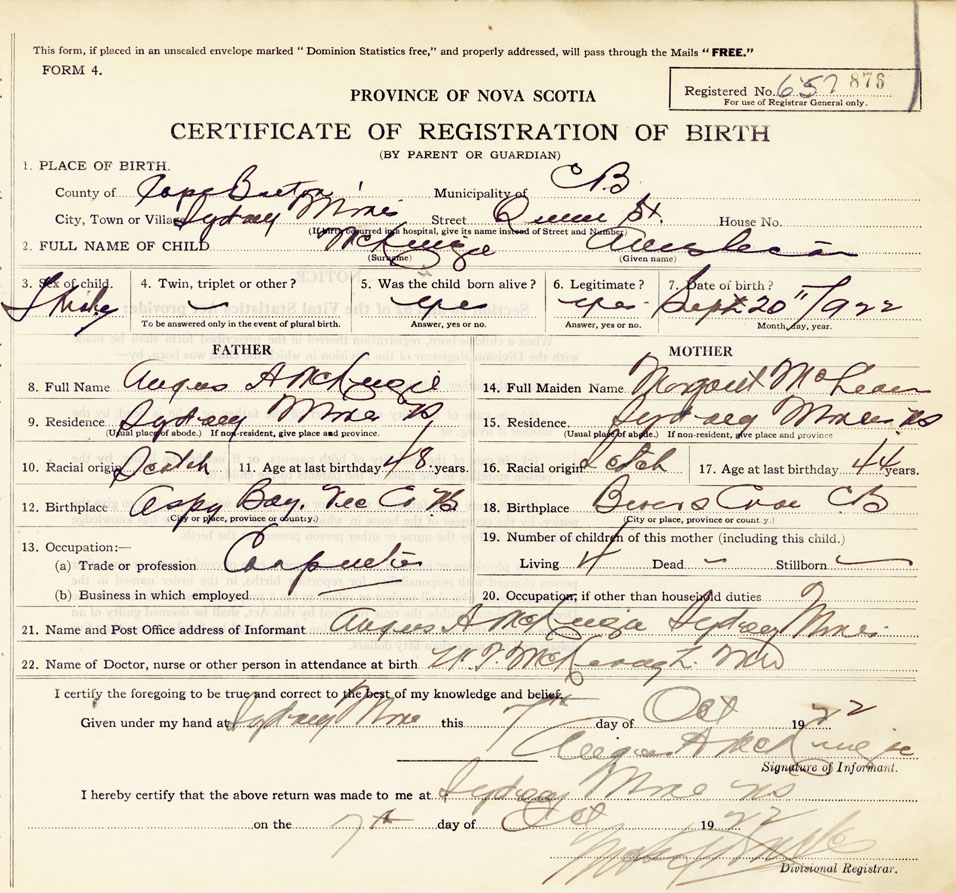 This form, if placed in an unsealed envelope marked "Dominion Statistics free," and properly addressed, will pass through the Mails "FREE."
FORM 4.
Registered No. 657 876
For use of Registrar General only.
PROVINCE OF NOVA SCOTIA
CERTIFICATE OF REGISTRATION OF BIRTH
(BY PARENT OR GUARDIAN)
1. PLACE OF BIRTH.
County of Cape Breton Municipality of C B
City, Town or Village Sydney Mines Street Queen St. House No.
(If birth occurred in a hospital, give its name instead of Street and Number)
2. FULL NAME OF CHILD McKenzie
(Surname) (Given name)
3. Sex of child. 4. Twin, triplet or other? 5. Was the child born alive? 6. Legitimate? 7. Date of birth?
— yes yes Sept 20" 1922
To be answered only in the event of plural birth. Answer, yes or no. Answer, yes or no. Month, day, year.
FATHER MOTHER
8. Full Name Angus A McKenzie 14. Full Maiden Name Margaret McLean
9. Residence Sydney Mines NS 15. Residence Sydney Mines NS
(Usual place of abode.) If non-resident, give place and province. (Usual place of abode.) If non-resident, give place and province
10. Racial origin Scotch 11. Age at last birthday 48 years. 16. Racial origin Scotch 17. Age at last birthday 44 years.
12. Birthplace Aspy Bay, Vic Co 18. Birthplace Cove CB
(City or place, province or county.) (City or place, province or county.)
13. Occupation:— 19. Number of children of this mother (including this child.)
(a) Trade or profession Carpenter Living 4 Dead — Stillborn —
(b) Business in which employed — 20. Occupation, if other than household duties
21. Name and Post Office address of Informant Angus A McKenzie Sydney Mines
22. Name of Doctor, nurse or other person in attendance at birth MD
I certify the foregoing to be true and correct to the best of my knowledge and belief.
Given under my hand at Sydney Mines this 7th day of Oct 1922
Angus A McKenzie
Signature of Informant.
I hereby certify that the above return was made to me at Sydney Mines NS
on the 7th day of Oct 1922
Divisional Registrar.